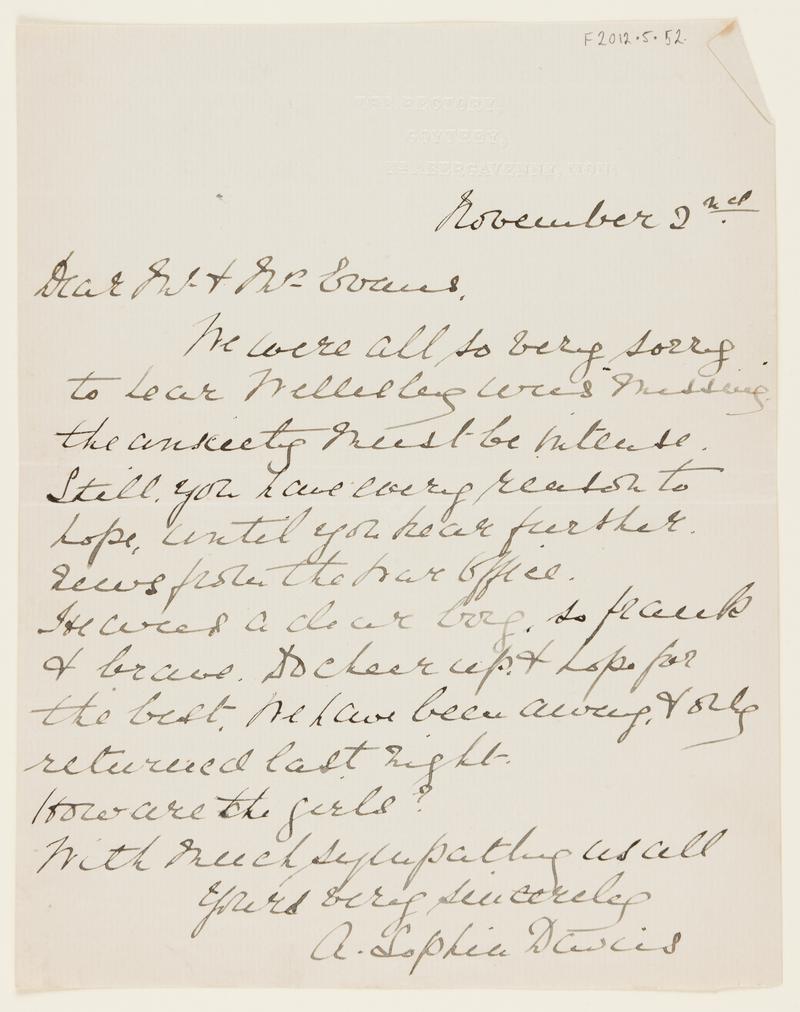 F2012.5.52.
THE RECTORY,
GOYTREY,
Nr ABERGAVENNY, MON.
November 2nd
Dear Mr. & Mrs Evans,
We were all so very sorry
to hear Wellesley was "Missing"
the anxiety must be intense.
Still, you have every reason to
hope, until you hear further.
news from the War Office.
He was a dear boy, so frank
& brave. Do cheer up, & hope for
the best. We have been away, & only
returned last night.
How are the girls?
With much sympathy us all
Yours very sincerely
A. Sophia Davis